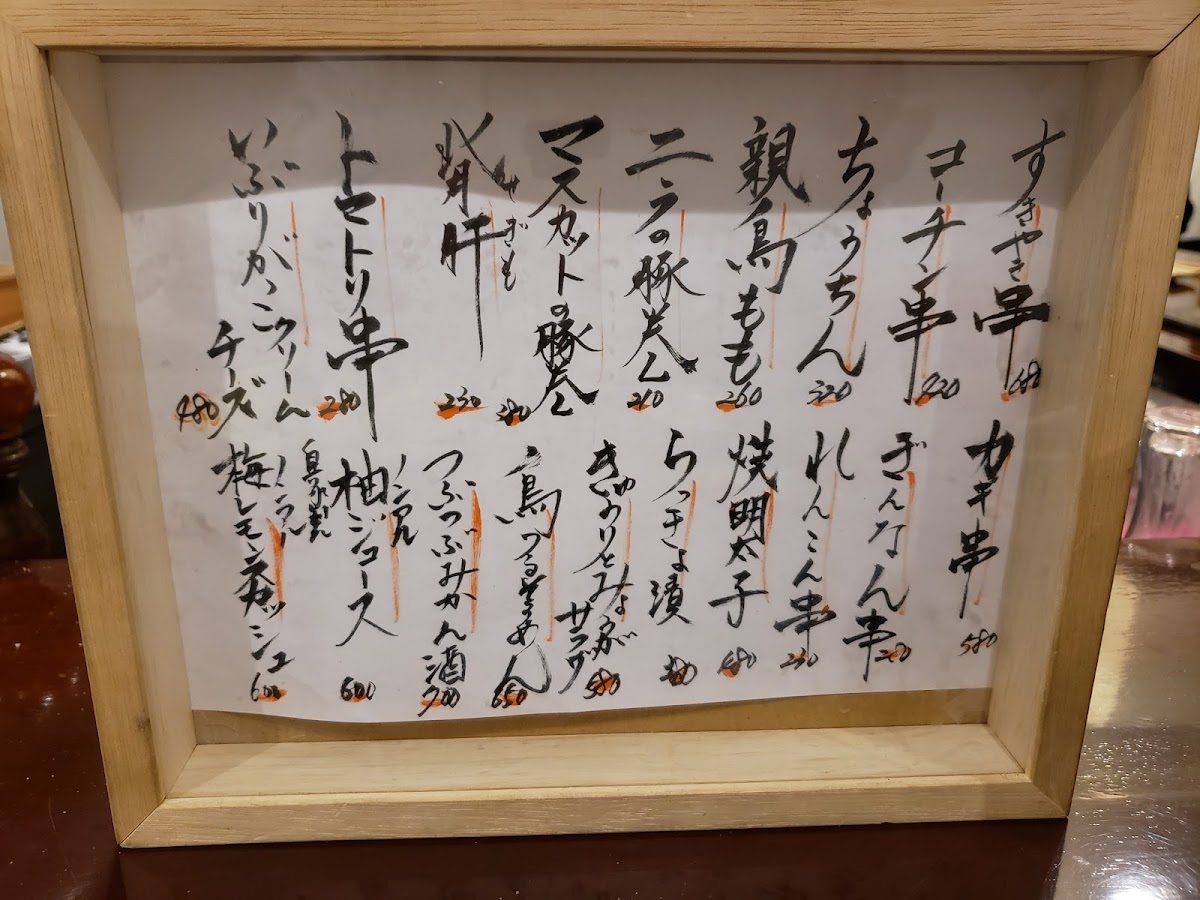 すきやき串 680
コーチン串 420
ちょうちん 320
親鳥もも 260
ニラの豚巻し 210
マスカットの豚巻し 280
せぎも
背肝 230
トマトリ串 280
いぶりがっこクリーム
チーズ 480
カキ串 580
ぎんなん串 280
れんこん串 230
焼明太子 480
らっきょ漬
きゅうりとみょうが
サラダ 580
鳥つるそうめん 650
つぶつぶみかん酒 700
ノンアル
柚ジュース 600
自家製
ノンアル
梅レモンスカッシュ 600